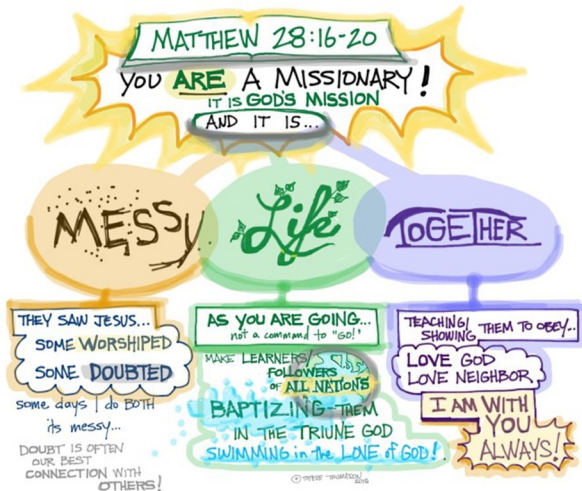 MATTHEW 28:16-20
YOU ARE A MISSIONARY!
IT IS GOD'S MISSION
AND IT IS...
MESSY
Life
TOGETHER
THEY SAW JESUS...
SOME WORSHIPED
SOME DOUBTED
some days I do BOTH
its messy...
DOUBT IS OFTEN
OUR BEST
CONNECTION WITH
OTHERS!
AS YOU ARE GOING...
not a command to "GO!"
MAKE LEARNERS/
FOLLOWERS
OF ALL NATIONS
BAPTIZING THEM
IN THE TRIUNE GOD
SWIMMING in the LOVE of GOD!
© STEVE THOMASON
TEACHING/
SHOWING THEM TO OBEY...
LOVE GOD
LOVE NEIGHBOR
I AM WITH
YOU
ALWAYS!